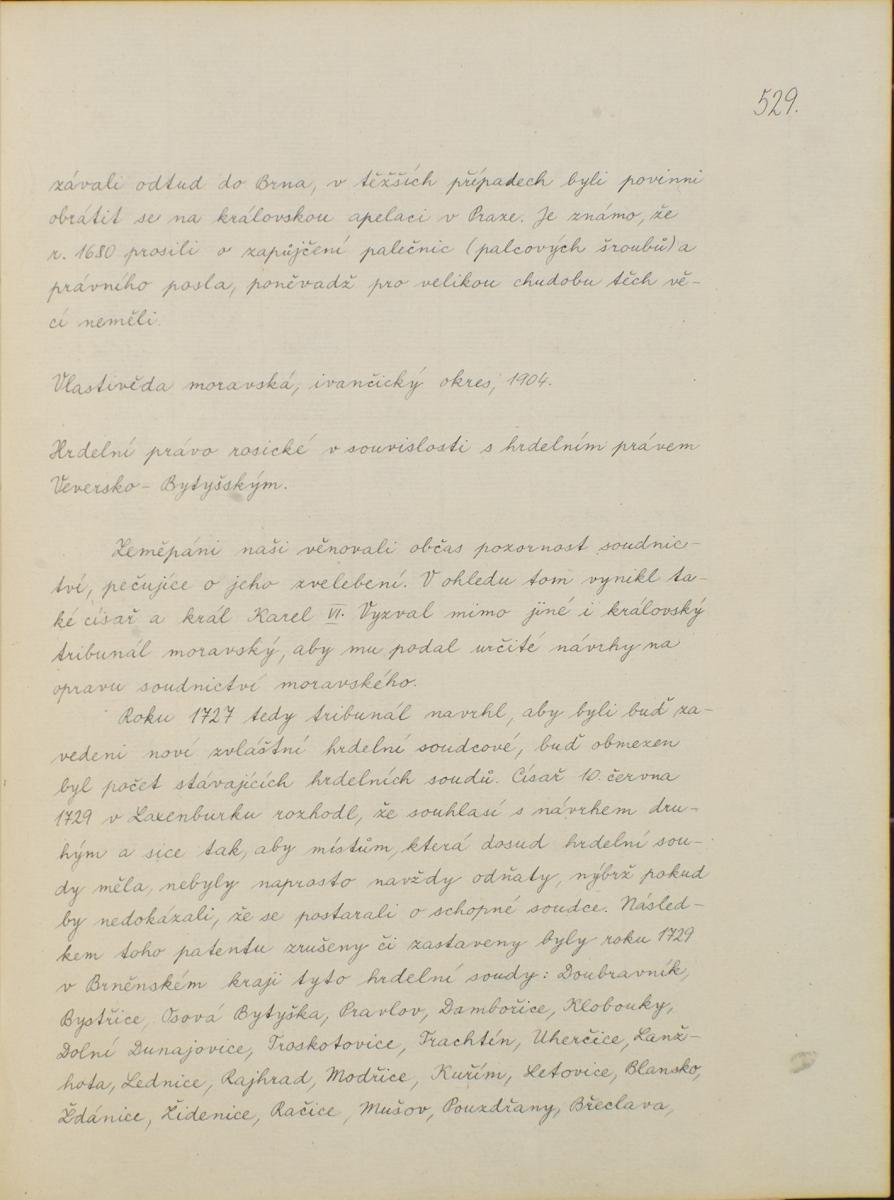 529.
závali odtud do Brna, v těžších případech byli povinni
obrátit se na královskou apelaci v Praze. Je známo, že
r. 1680 prosili o zapůjčení palečnic (palcových šroubů) a
právního posla, poněvadž pro velikou chudobu těch vě-
cí neměli.
Vlastivěda moravská, ivančický okres, 1904.
Hrdelní právo rosické v souvislosti s hrdelním právem
Veversko-Bytyšským.
Zeměpáni naši věnovali občas pozornost soudnic-
tví, pečujíce o jeho zvelebení. V ohledu tom vynikl ta-
ké císař a král Karel VI. Vyzval mimo jiné i královský
tribunál moravský, aby mu podal určité návrhy na
opravu soudnictví moravského.
Roku 1727 tedy tribunál navrhl, aby byli buď za-
vedeni noví zvláštní hrdelní soudcové, buď obmezen
byl počet stávajících hrdelních soudů. Císař 10. června
1729 v Laxenburku rozhodl, že souhlasí s návrhem dru-
hým a sice tak, aby místům, která dosud hrdelní sou-
dy měla, nebyly naprosto navždy odňaty, nýbrž pokud
by nedokázali, že se postarali o schopné soudce. Násled-
kem toho patentu zrušeny či zastaveny byly roku 1729
v Brněnském kraji tyto hrdelní soudy: Doubravník,
Bystřice, Osová Bytyška, Pravlov, Dambořice, Klobouky,
Dolní Dunajovice, Troskotovice, Trachtín, Uherčice, Lanž-
hota, Lednice, Rajhrad, Modřice, Kuřím, Letovice, Blansko,
Ždánice, Židenice, Račice, Mušov, Pouzdřany, Břeclava,